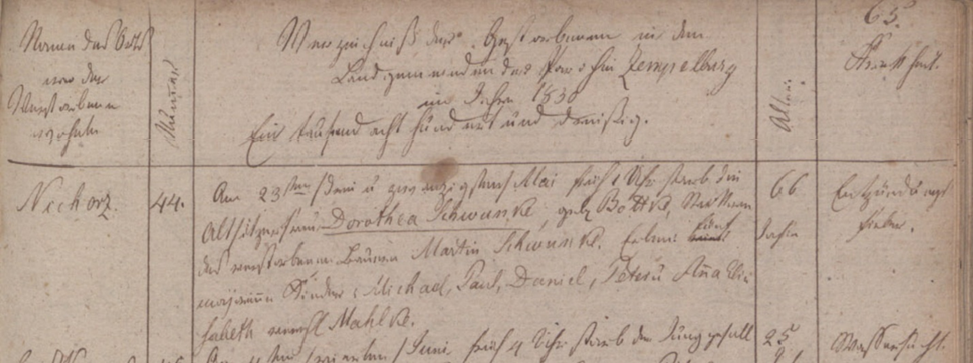 65.
Namen des Orts
wo der
Verstorbene
wohnte
Numer
Verzeichniß der Gestorbenen in den
Landgemeinden des Parochie Zempelburg
im Jahre 1830
Ein tausend acht hundert und dreißig.
Alter.
Krankheit.
Nichorz.
44.
Am 23sten /drei u zwanzigsten/ Mai früh 1 Uhr starb die
Altsitzerfrau Dorothea Schwanke geb Bottke,
des verstorbenen Bauern Martin Schwanke. Erben:
majorenne Kinder: Michael, Paul, Daniel, Peter u Anna Eli-
sabeth verehl Mahlke.
66
Jahr
Entzündungs
fieber.
/vierten/ Juni, früh 4 Uhr starb der Junggesell
25
Wassersucht.